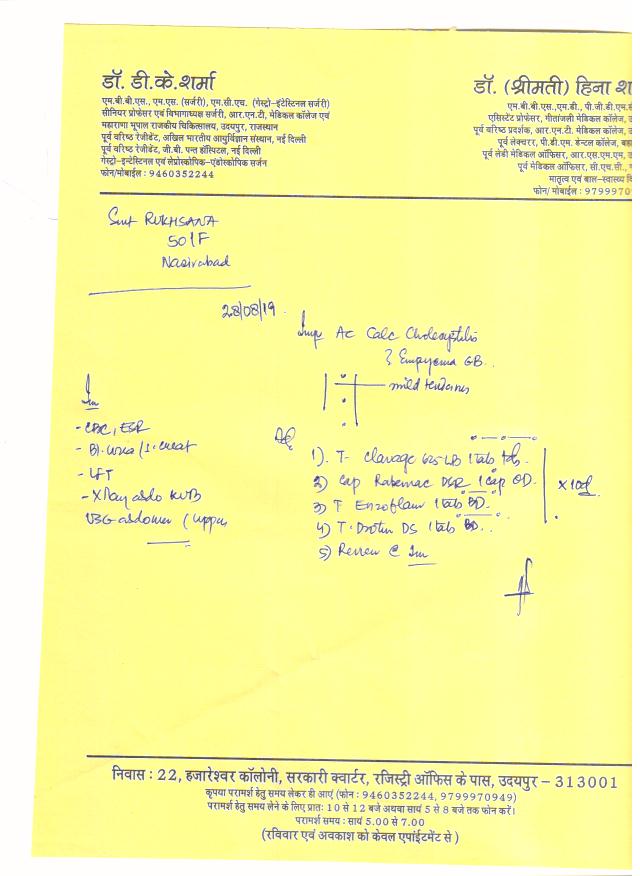 डॉ. डी.के.शर्मा
एम.बी.बी.एस., एम.एस. (सर्जरी), एम.सी.एच. (गेस्ट्रो-इंटेस्टिनल सर्जरी)
सीनियर प्रोफेसर एवं विभागाध्यक्ष सर्जरी, आर.एन.टी. मेडिकल कॉलेज एवं
महाराणा भूपाल राजकीय चिकित्सालय, उदयपुर, राजस्थान
पूर्व वरिष्ठ रेजीडेंट, अखिल भारतीय आयुर्विज्ञान संस्थान, नई दिल्ली
पूर्व वरिष्ठ रेजीडेंट, जी.बी. पन्त हॉस्पिटल, नई दिल्ली
गेस्ट्रो-इन्टेस्टिनल एवं लेप्रोस्कोपिक-एंडोस्कोपिक सर्जन
फोन/मोबाईल : 9460352244
डॉ. (श्रीमती) हिना श
एम.बी.बी.एस.,एम.डी., पी.जी.डी.एम.
एसिस्टेंट प्रोफेसर, गीतांजली मेडिकल कॉलेज,
पूर्व वरिष्ठ प्रदर्शक, आर.एन.टी. मेडिकल कॉलेज,
पूर्व लेक्चरर, पी.डी.एम. डेन्टल कॉलेज,
पूर्व लेडी मेडिकल ऑफिसर, आर.एस.एम.एम,
पूर्व मेडिकल ऑफिसर, सी.एच.सी.,
मातृत्व एवं बाल-स्वास्थ्य
फोन/ मोबाईल : 9799970
Smt RUKHSANA
50/F
Nasirabad
28/08/19
Imp Ac Calc Cholecystitis
? Empyema GB
mild tenderness
- CBC, ESR
- Bl. urea / S. creat
- LFT
- X Ray abdo KUB
USG abdomen (upper
1). T- Clavage 625-LB 1 tab tds
2) Cap Rabemac DSR 1 cap OD
3) T Enzoflam 1 tab BD
4) T. Drotin DS 1 tab BD
x 10d
5) Review c̄ Inv
निवास : 22, हजारेश्वर कॉलोनी, सरकारी क्वार्टर, रजिस्ट्री ऑफिस के पास, उदयपुर – 313001
कृपया परामर्श हेतु समय लेकर ही आएं (फोन : 9460352244, 9799970949)
परामर्श हेतु समय लेने के लिए प्रातः 10 से 12 बजे अथवा सायं 5 से 8 बजे तक फोन करें।
परामर्श समय : सायं 5.00 से 7.00
(रविवार एवं अवकाश को केवल एपांईटमेंट से )